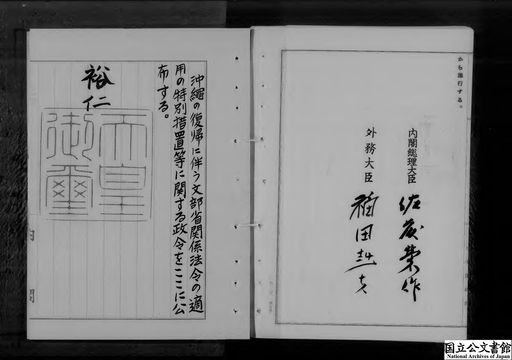 から施行する。
内閣総理大臣 佐藤榮作
外務大臣 福田赳夫
沖縄の復帰に伴う文部省関係法令の適
用の特別措置等に関する政令をここに公
布する。
裕仁
天皇
御璽
国立公文書館
National Archives of Japan